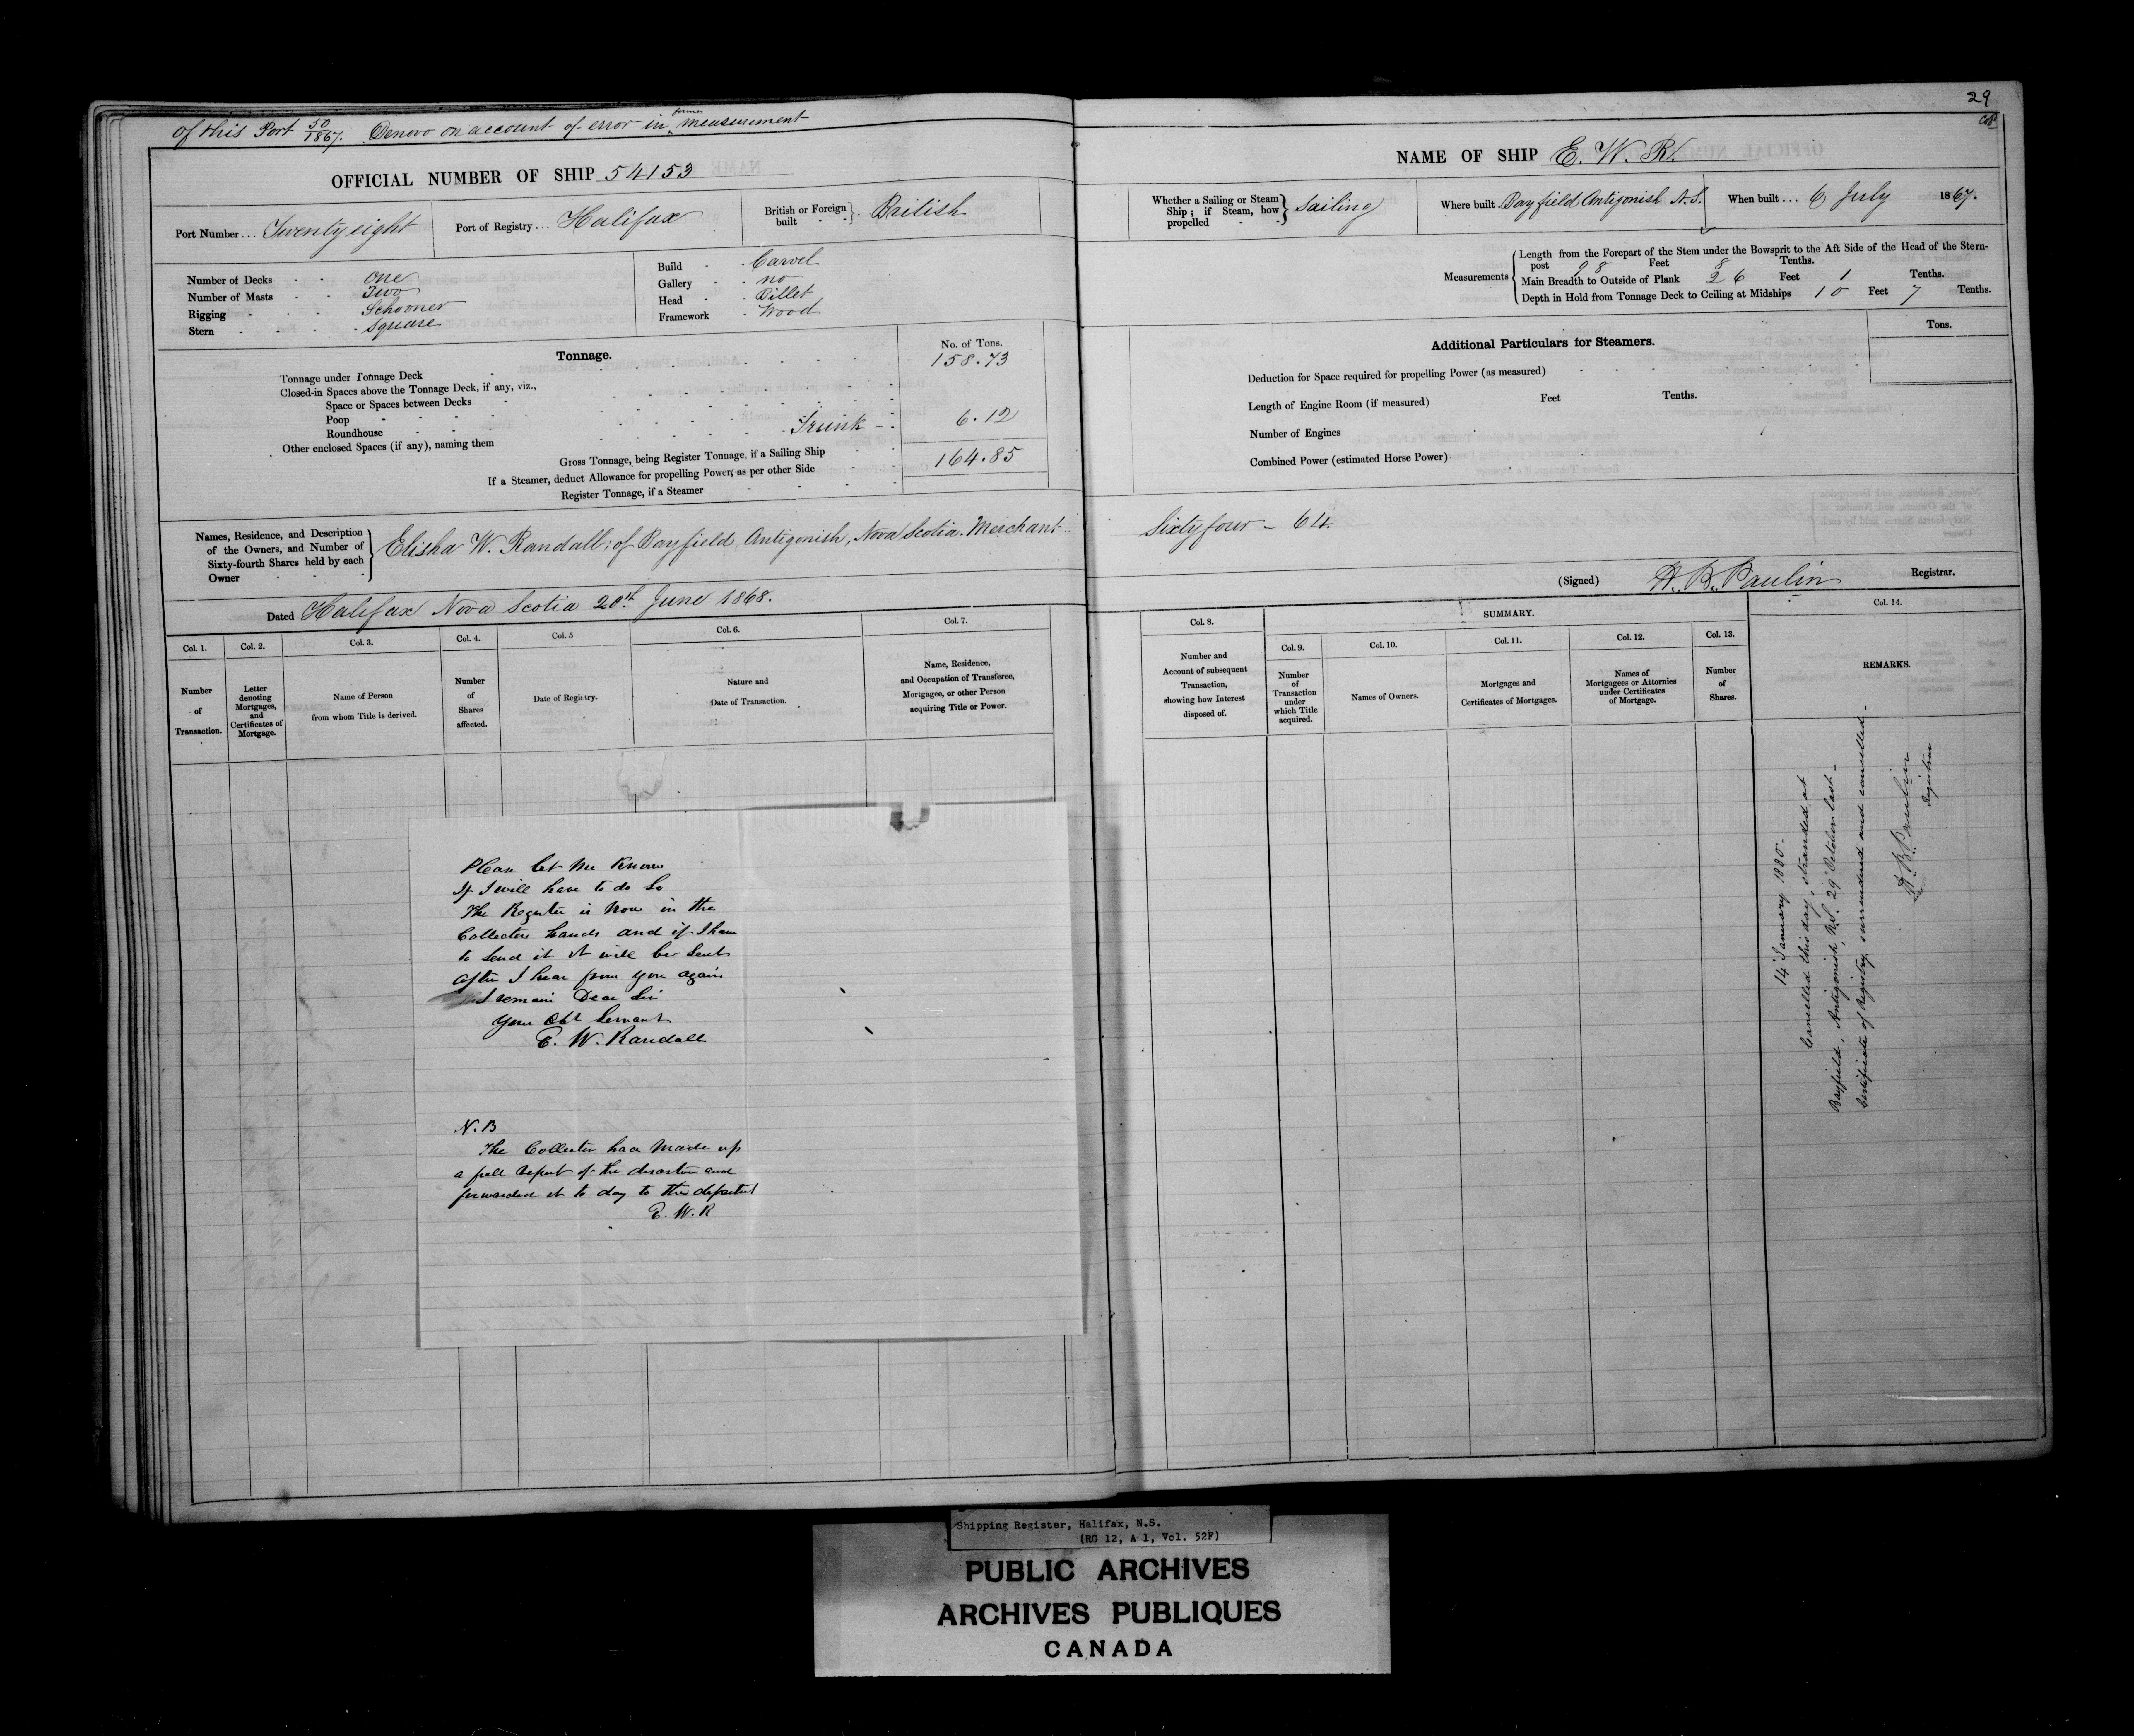 29
of this Port 50/1867. Denovo on account of error in former measurement
OFFICIAL NUMBER OF SHIP 54153
Port Number ... Twenty eight
Port of Registry ... Halifax
British or Foreign built } British
Number of Decks - - One
Number of Masts - - Two
Rigging - - - Schooner
Stern - - - - Square
Build - - Carvel
Gallery - - no
Head - - Billet
Framework - Wood
Tonnage.
No. of Tons.
Tonnage under Tonnage Deck 158.73
Closed-in Spaces above the Tonnage Deck, if any, viz.,
Space or Spaces between Decks
Poop
Roundhouse
Other enclosed Spaces (if any), naming them Trunk - 6.12
Gross Tonnage, being Register Tonnage, if a Sailing Ship 164.85
If a Steamer, deduct Allowance for propelling Power, as per other Side
Register Tonnage, if a Steamer
Names, Residence, and Description of the Owners, and Number of Sixty-fourth Shares held by each Owner
Elisha W. Randall, of Bayfield, Antigonish, Nova Scotia. Merchant
Dated Halifax Nova Scotia 20th June 1868.
Col. 1.
Number of Transaction.
Col. 2.
Letter denoting Mortgages, and Certificates of Mortgage.
Col. 3.
Name of Person from whom Title is derived.
Col. 4.
Number of Shares affected.
Col. 5
Date of Registry.
Col. 6.
Nature and Date of Transaction.
Col. 7.
Name, Residence, and Occupation of Transferee, Mortgagee, or other Person acquiring Title or Power.
Please let me know
If I will have to do so
The Register is now in the
Collectors hands and if I have
to send it it will be sent
after I hear from you again
I remain Dear Sir
your Obt Servant
E. W. Randall
N.B
The Collector has made up
a full report of the disaster and
forwarded it to day to the
E. W. R
NAME OF SHIP E. W. R.
Whether a Sailing or Steam Ship; if Steam, how propelled } Sailing
Where built Bayfield Antigonish N.S.
When built ... 6 July 1867.
Measurements
Length from the Forepart of the Stem under the Bowsprit to the Aft Side of the Head of the Stern-
post 98 Feet 8 Tenths.
Main Breadth to Outside of Plank 26 Feet 1 Tenths.
Depth in Hold from Tonnage Deck to Ceiling at Midships 10 Feet 7 Tenths.
Additional Particulars for Steamers.
Tons.
Deduction for Space required for propelling Power (as measured)
Length of Engine Room (if measured) Feet Tenths.
Number of Engines
Combined Power (estimated Horse Power)
Sixty four - 64.
(Signed) H. B. Paulin Registrar.
Col. 8.
Number and Account of subsequent Transaction, showing how Interest disposed of.
SUMMARY.
Col. 9.
Number of Transaction under which Title acquired.
Col. 10.
Names of Owners.
Col. 11.
Mortgages and Certificates of Mortgages.
Col. 12.
Names of Mortgagees or Attornies under Certificates of Mortgage.
Col. 13.
Number of Shares.
Col. 14.
REMARKS.
14 January 1880 -
Cancelled this day, stranded at
Bayfield, Antigonish, N.S. 29 October last -
Certificate of Registry surrendered and cancelled -
H. B. Paulin
Registrar
Shipping Register, Halifax, N.S.
(RG 12, A 1, Vol. 52F)
PUBLIC ARCHIVES
ARCHIVES PUBLIQUES
CANADA